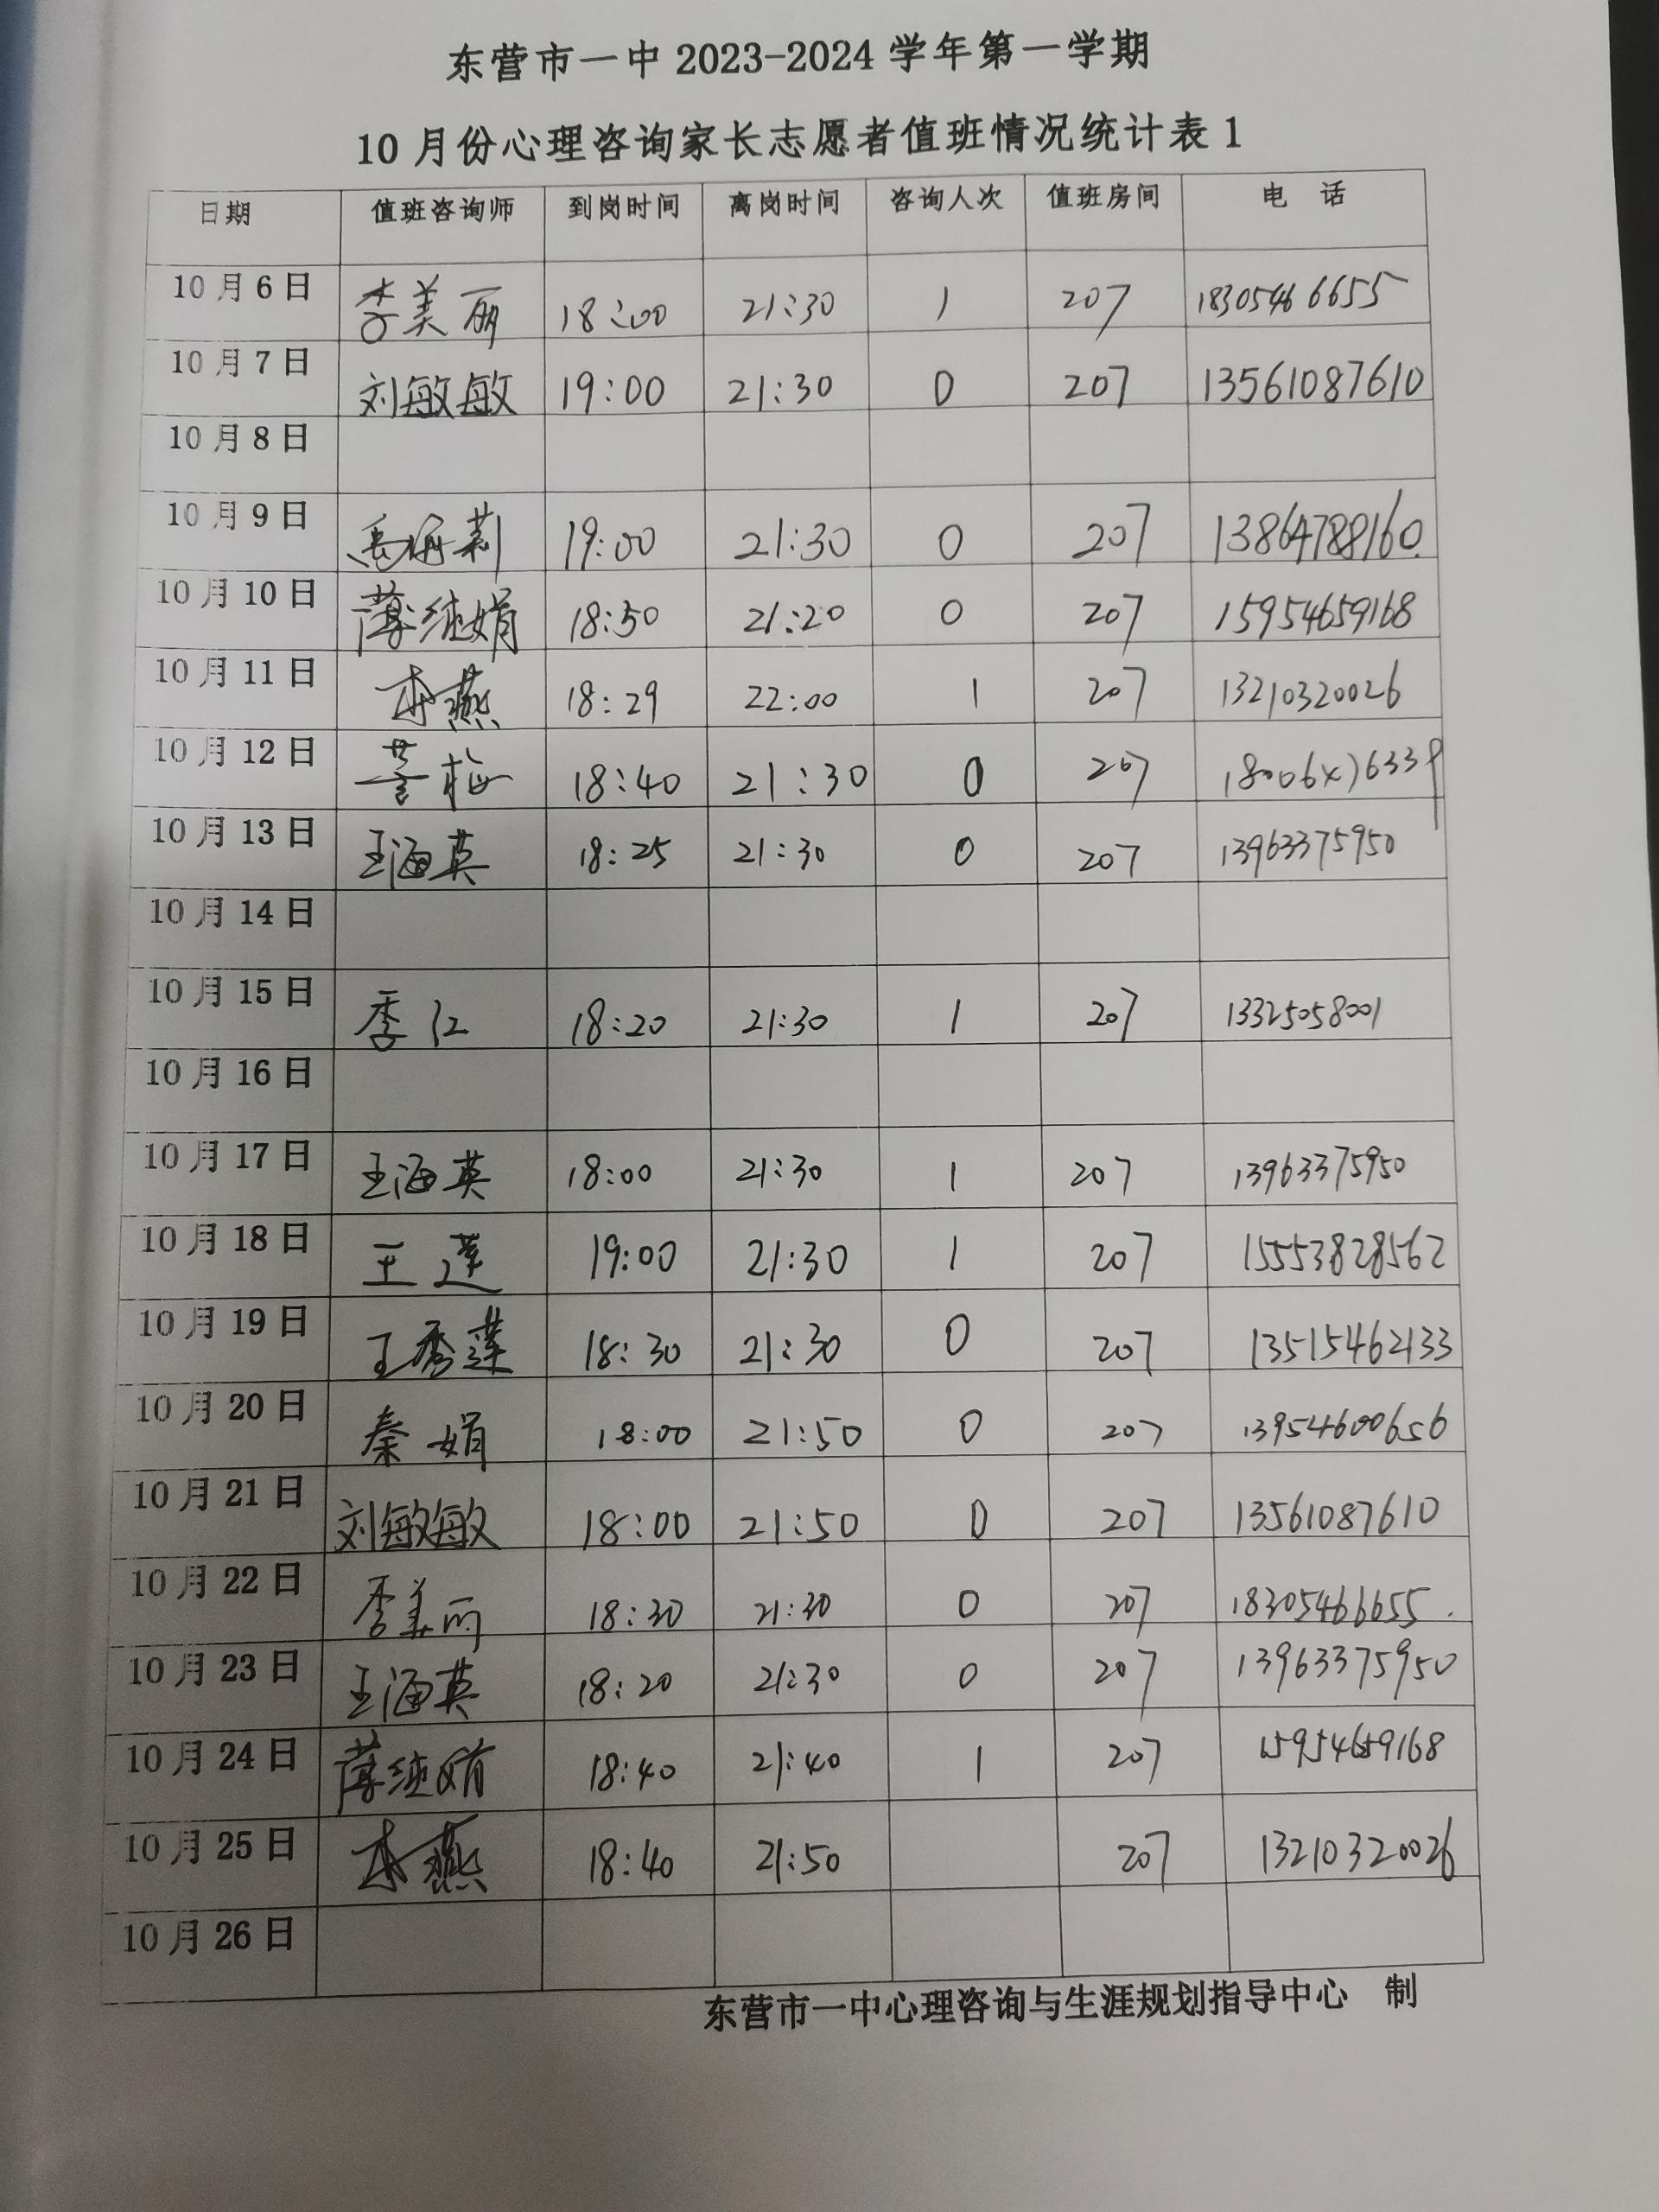 东营市一中 2023-2024 学年第一学期
10 月份心理咨询家长志愿者值班情况统计表 1
日期 值班咨询师 到岗时间 离岗时间 咨询人次 值班房间 电 话
10 月 6 日 李美丽 18:00 21:30 1 207 18305466655
10 月 7 日 刘敏敏 19:00 21:30 0 207 13561087610
10 月 8 日
10 月 9 日 19:00 21:30 0 207 13864788160
10 月 10 日 薄纯娟 18:50 21:20 0 207 15954659168
10 月 11 日 李燕 18:29 22:00 1 207 13210320026
10 月 12 日 董梅 18:40 21:30 0 207
10 月 13 日 王海英 18:25 21:30 0 207 13963375950
10 月 14 日
10 月 15 日 季红 18:20 21:30 1 207 13325058001
10 月 16 日
10 月 17 日 王海英 18:00 21:30 1 207 13963375950
10 月 18 日 王莲 19:00 21:30 1 207 15553828562
10 月 19 日 王秀莲 18:30 21:30 0 207 13515462133
10 月 20 日 秦娟 18:00 21:50 0 207 13954600656
10 月 21 日 刘敏敏 18:00 21:50 0 207 13561087610
10 月 22 日 李美丽 18:30 21:30 0 207 18305466655.
10 月 23 日 王海英 18:20 21:30 0 207 13963375950
10 月 24 日 薄纯娟 18:40 21:40 1 207 15954659168
10 月 25 日 李燕 18:40 21:50 207 13210320026
10 月 26 日
东营市一中心理咨询与生涯规划指导中心 制